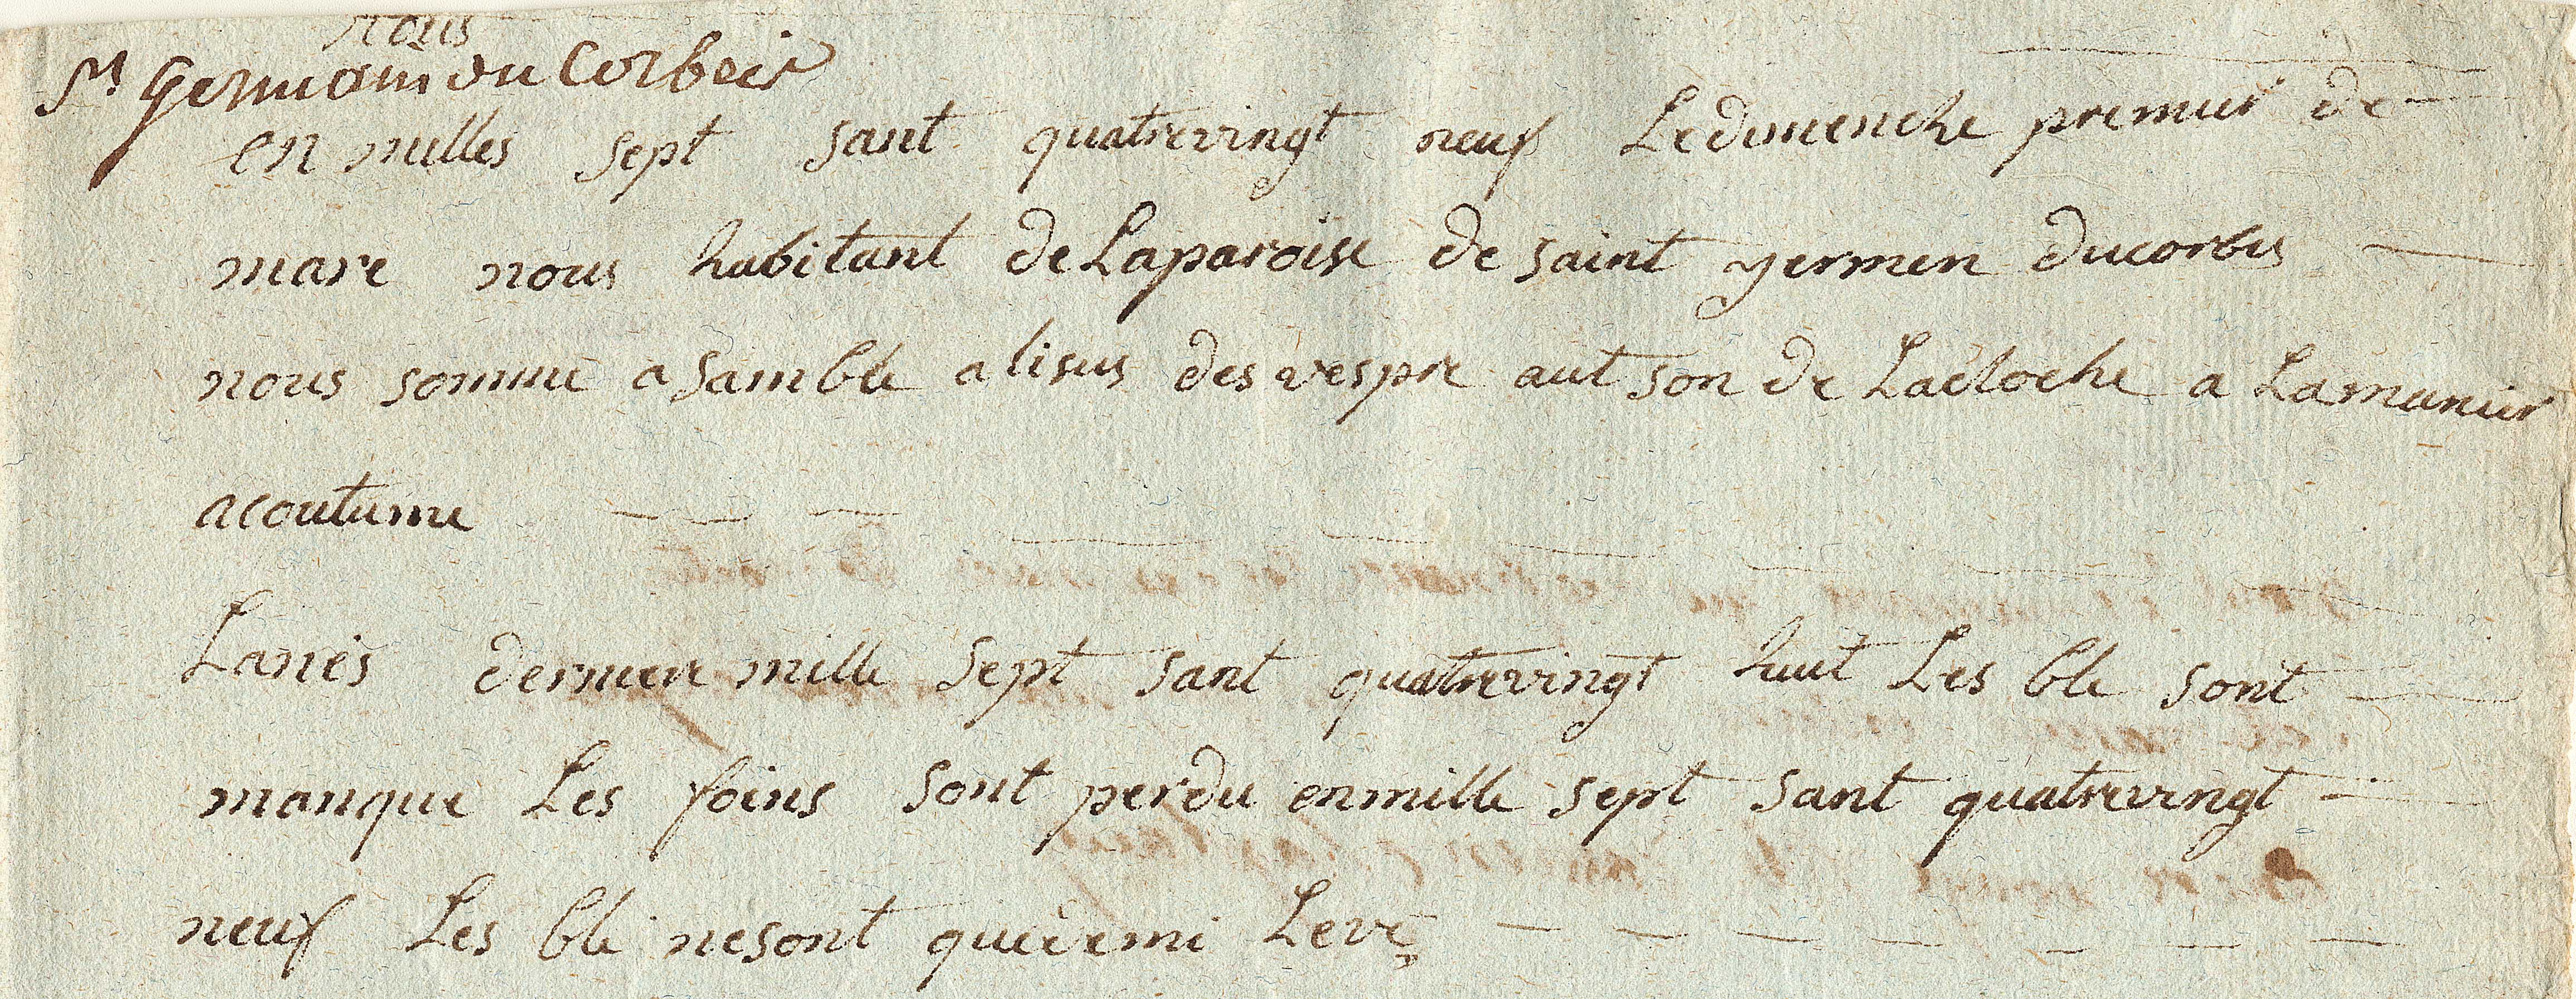 nous
St Germain du Corbeis
en milles sept sant quatrevingt neuf Ledimenche premier de
mare nous habitant de Laparoise de saint germen ducorbis
nous somme a samble a lisus des vespre aut son de Lacloche a Lamanier
acoutume
Lanès derniere mille sept sant quatrevingt huit Les ble sont
manque Les foins sont perdu enmille sept sant quatrevingt
neuf Les ble nesont quedemi Leve